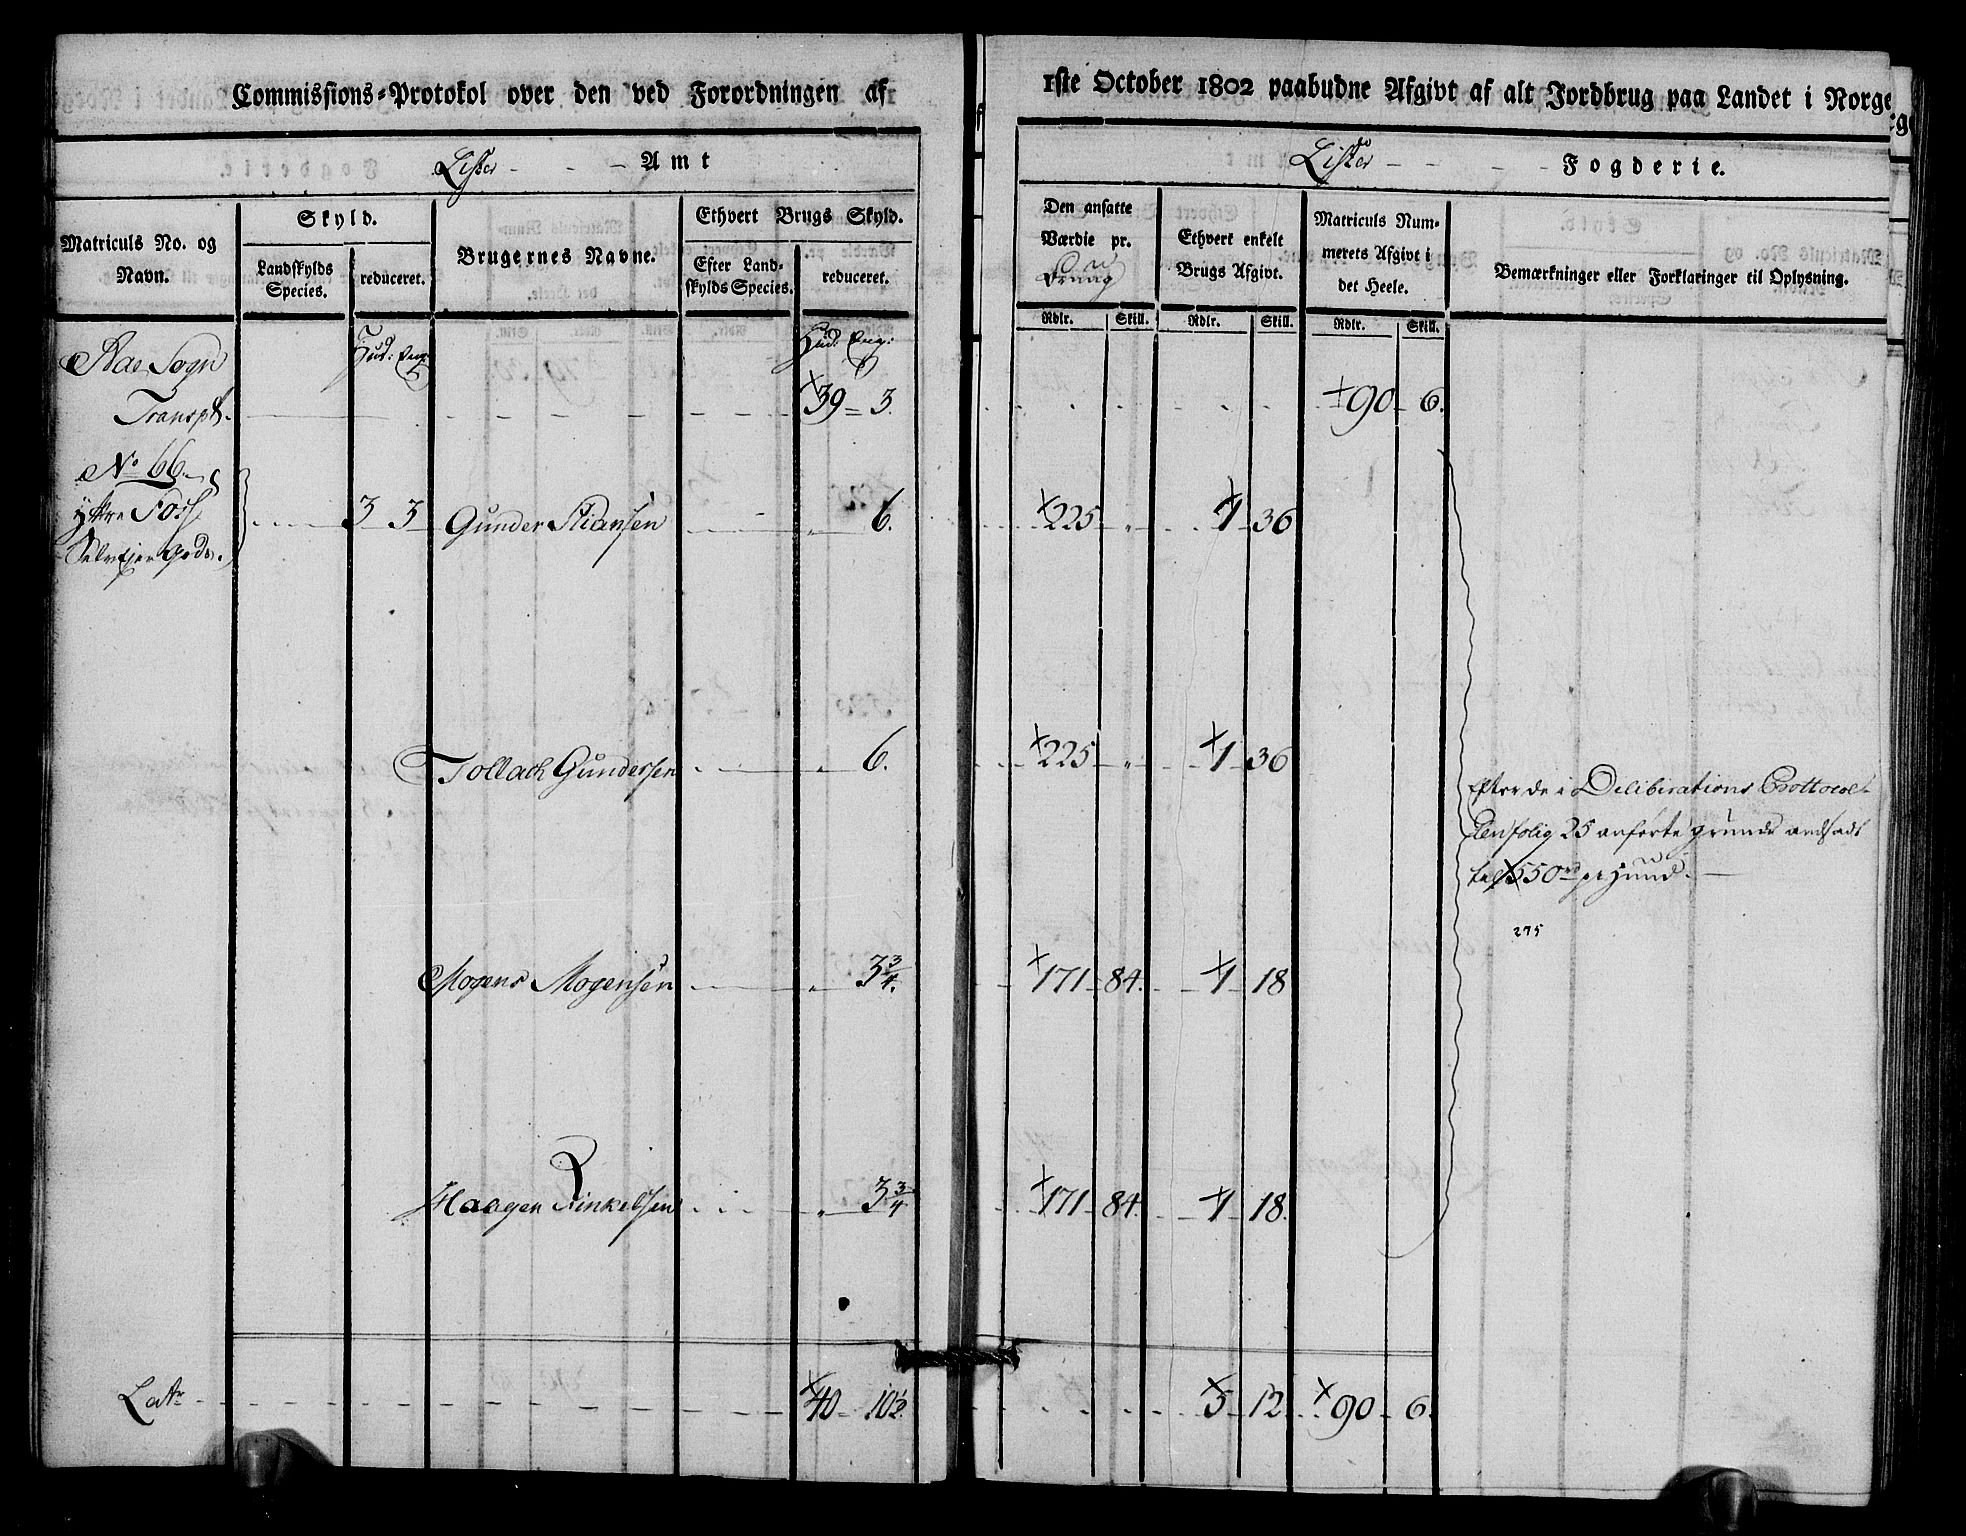 Commissions-Protokol over den ved Forordningen af
1ste October 1802 paabudne Afgivt af alt Jordbrug paa Landet i Norge
Lister Amt
Lister Fogderie.
Matriculs No. og
Navn.
Skyld.
Landskylds
Species.
reduceret.
Brugernes Navne.
Ethvert Brugs Skyld.
Efter Land-
skylds Species.
reduceret.
Den ansatte
Værdie pr.
Ethvert enkelt
Brugs Afgivt.
Matriculs Num-
merets Afgivt i
det Heele.
Bemærkninger eller Forklaringer til Oplysning.
Rdlr. Skill. Rdlr. Skill. Rdlr. Skill.
Sogn Hud: Eng: Hud: Eng:
Transpt. 39 3. 90 6.
No 66.
yttre Foss 3 3 Gunder Stiansen " 6. 225 " 1 36
Selveier gods.
Tollach Gundersen " 6. 225 " 1 36
Efter de i Deliberations Prottocol-
len folig 25 anførte grunde andsadt
til 550 rd pr Hund.
275
Mogens Mogensen " 3 3/4. 171 84. 1 18
Haagen Rinkelsen " 3 3/4 171 84. 1 18.
Latr 40 10 1/2. 5 12. 90 6.